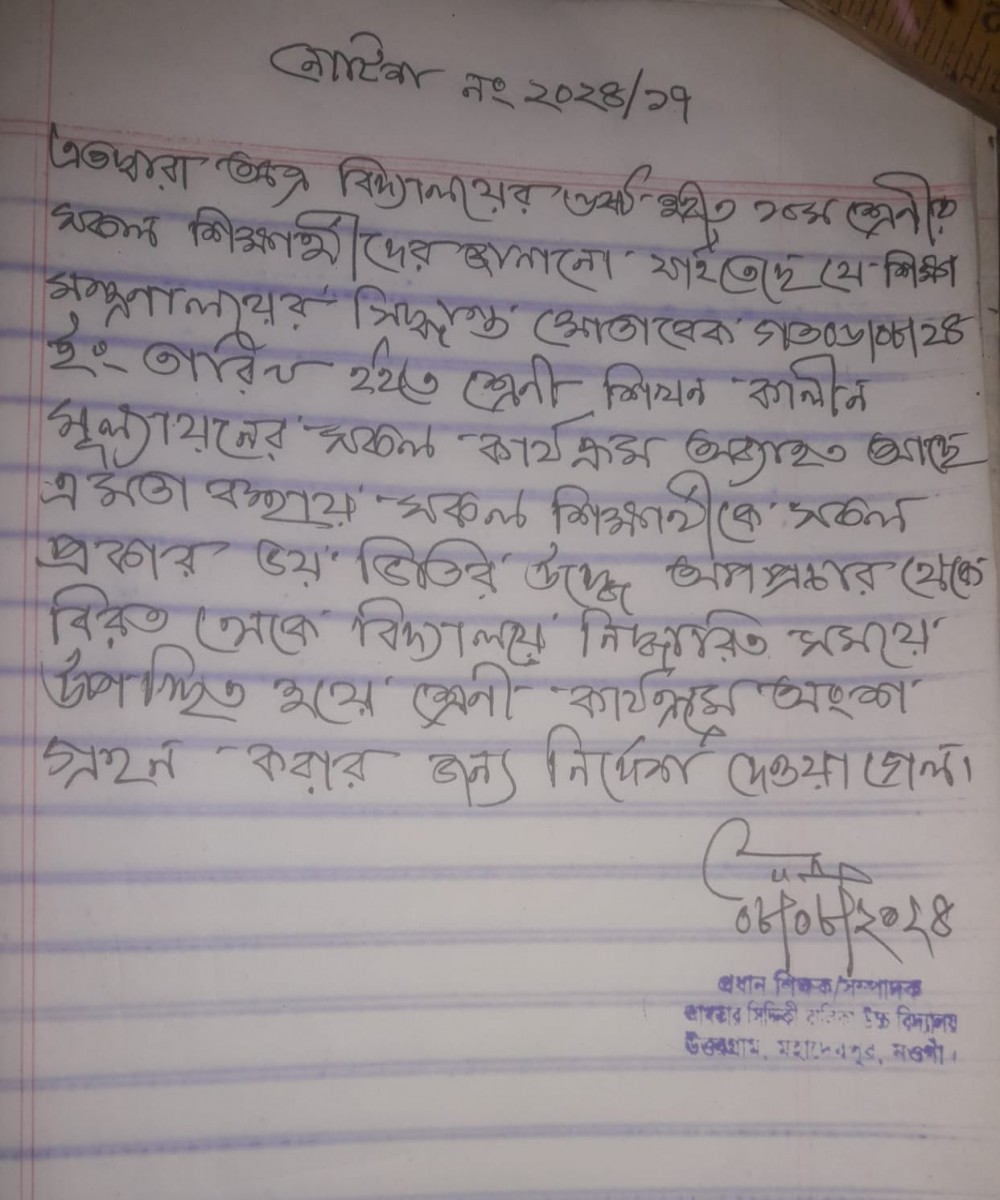 নোটিশ নং ২০২৪/১৭
এতদ্বারা অত্র বিদ্যালয়ের ৬ষ্ঠ হইতে ১০ম শ্রেনীর
সকল শিক্ষার্থীদের জানানো যাইতেছে যে শিক্ষা
মন্ত্রনালয়ের সিদ্ধান্ত মোতাবেক গত ০৬/০৮/২৪
ইং তারিখ হইতে শ্রেনী শিখন কালীন
মূল্যায়নের সকল কার্যক্রম অব্যাহত আছে
এমতাবস্থায় সকল শিক্ষার্থীকে সকল
প্রকার ভয় ভিতির উদ্ধে অপপ্রচার থেকে
বিরত থেকে বিদ্যালয়ে নিদ্ধারিত সময়ে
উপস্থিত হয়ে শ্রেনী কার্যক্রমে অংশ
গ্রহন করার জন্য নির্দেশ দেওয়া গেল।
০৮/০৮/২০২৪
প্রধান শিক্ষক/সম্পাদক
সিদ্দিকী উচ্চ বিদ্যালয়
উত্তরগ্রাম, মহাদেবপুর, নওগাঁ।